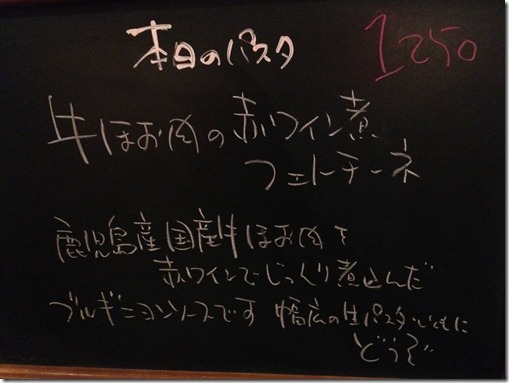 本日のパスタ 1250
牛ほお肉の赤ワイン煮
フェトチーネ
鹿児島産国産牛ほお肉を
赤ワインでじっくり煮込んだ
ブルギニヨンソースです 幅広の生パスタとともに
どうぞ